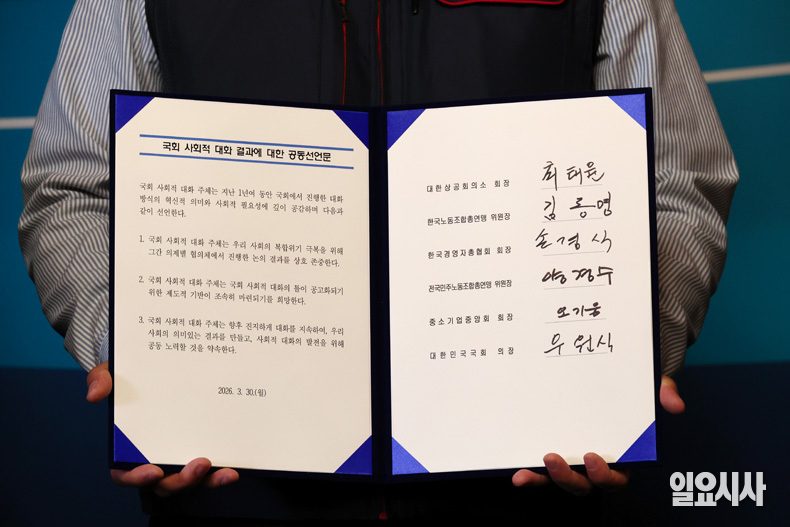 국회 사회적 대화 결과에 대한 공동선언문
국회 사회적 대화 주체는 지난 1년여 동안 국회에서 진행한 대화
방식의 혁신적 의미와 사회적 필요성에 깊이 공감하며 다음과
같이 선언한다.
1. 국회 사회적 대화 주체는 우리 사회의 복합위기 극복을 위해
그간 의제별 협의체에서 진행한 논의 결과를 상호 존중한다.
2. 국회 사회적 대화 주체는 국회 사회적 대화의 틀이 공고화되기
위한 제도적 기반이 조속히 마련되기를 희망한다.
3. 국회 사회적 대화 주체는 향후 진지하게 대화를 지속하여, 우리
사회의 의미있는 결과를 만들고, 사회적 대화의 발전을 위해
공동 노력할 것을 약속한다.
2026. 3. 30.(월)
대한상공회의소 회장 최태원
한국노동조합총연맹 위원장 김동명
한국경영자총협회 회장 손경식
전국민주노동조합총연맹 위원장 양경수
중소기업중앙회 회장 오기웅
대한민국국회 의장 우원식
일요시사